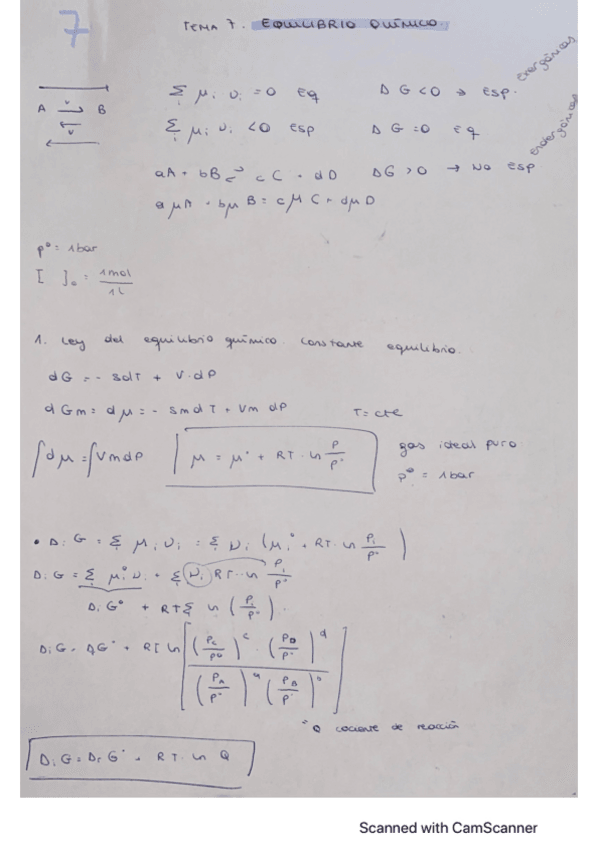 7
TEMA 7. EQUILIBRIO QUÍMICO.
A ⇄ B
v
v
Σ μi νi = 0 Eq
ΔG < 0 → esp. exergónicas
Σ μi νi < 0 esp
ΔG = 0 Eq
aA + bB ⇄ cC + dD
ΔG > 0 → No esp endergónicas
aμA + bμB = cμC + dμD
p° = 1bar
[ ]o = 1mol / 1L
1. Ley del equilibrio químico. Constante equilibrio.
dG = - SdT + V·dP
dGm = dμ = - SmdT + Vm dP T = cte
∫dμ = ∫VmdP
μ = μ° + RT · ln P/P°
gas ideal puro
p° = 1bar
• ΔrG = Σ μi νi = Σ νi (μi° + RT · ln Pi/P°)
ΔrG = Σ μi° νi + Σ νi RT · ln Pi/P°
ΔrG° + RTΣ ln (Pi/P°).
ΔrG = ΔG° + RT ln [ (Pc/P°)^c · (PD/P°)^d / (PA/P°)^a (PB/P°)^b ]
"Q cociente de reacción
ΔrG = ΔrG° + RT · ln Q
Scanned with CamScanner